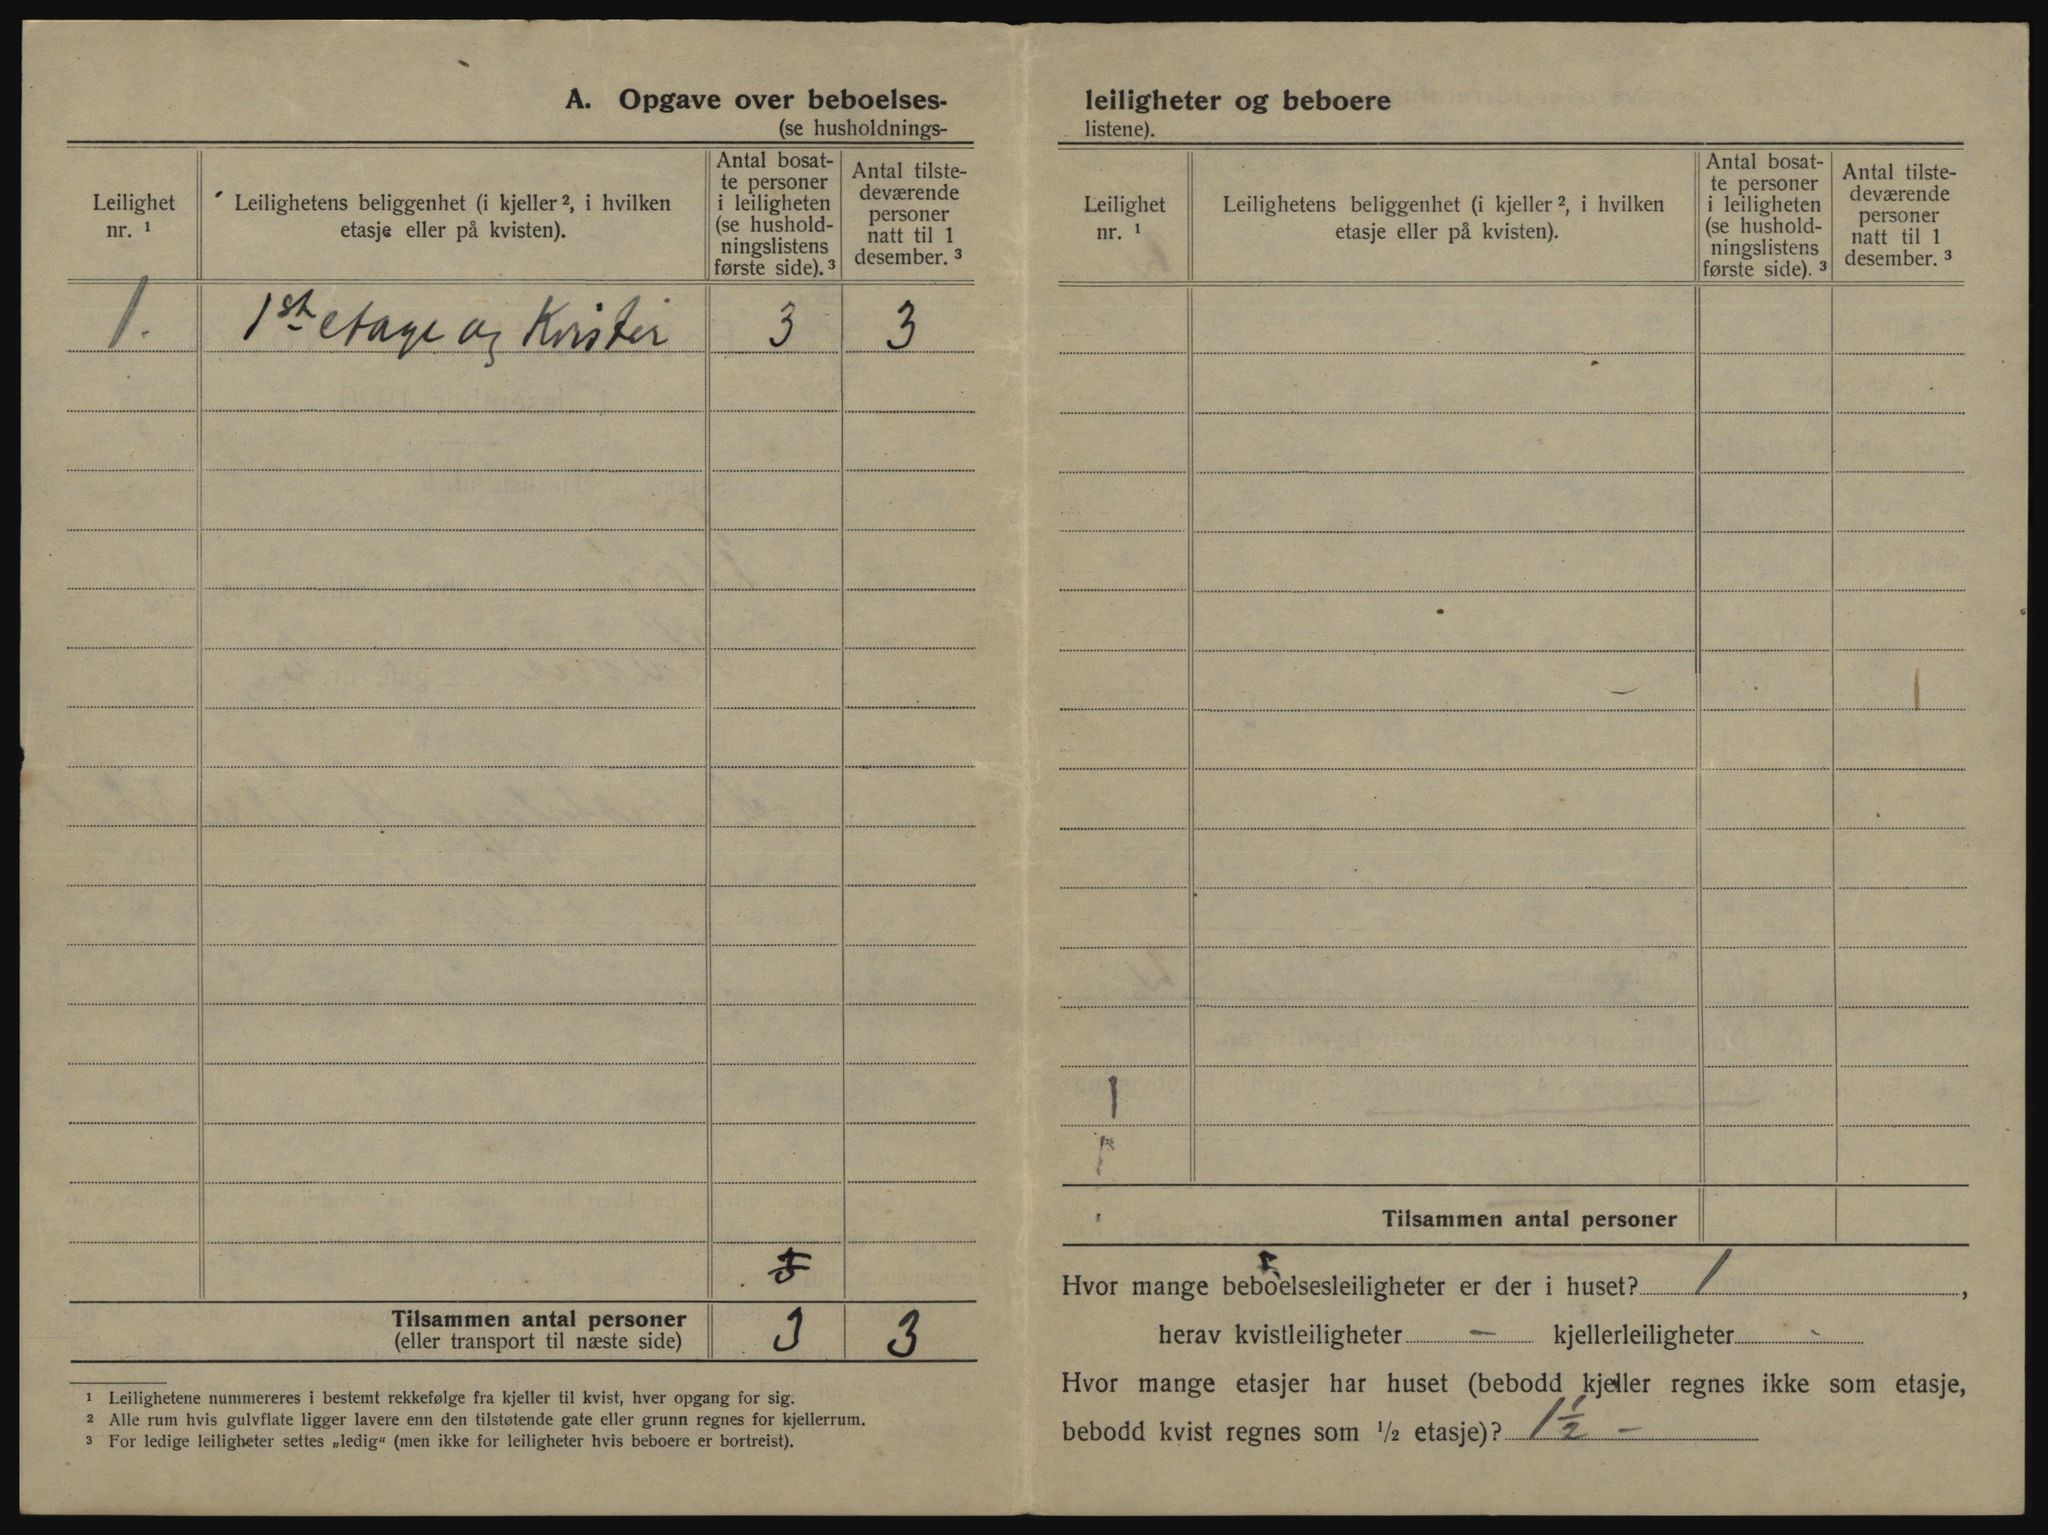 A. Opgave over beboelses-
(se husholdnings-
Leilighet
nr. ¹
Leilighetens beliggenhet (i kjeller ², i hvilken
etasje eller på kvisten).
Antal bosat-
te personer
i leiligheten
(se hushold-
ningslistens
første side). ³
Antal tilste-
deværende
personer
natt til 1
desember. ³
1. 1ste etage og Kvister 3 3
Tilsammen antal personer 3 3
(eller transport til næste side)
¹ Leilighetene nummereres i bestemt rekkefølge fra kjeller til kvist, hver opgang for sig.
² Alle rum hvis gulvflate ligger lavere enn den tilstøtende gate eller grunn regnes for kjellerrum.
³ For ledige leiligheter settes „ledig“ (men ikke for leiligheter hvis beboere er bortreist).
leiligheter og beboere
listene).
Leilighet
nr. ¹
Leilighetens beliggenhet (i kjeller ², i hvilken
etasje eller på kvisten).
Antal bosat-
te personer
i leiligheten
(se hushold-
ningslistens
første side). ³
Antal tilste-
deværende
personer
natt til 1
desember. ³
Tilsammen antal personer
Hvor mange beboelsesleiligheter er der i huset? 1,
herav kvistleiligheter - kjellerleiligheter -
Hvor mange etasjer har huset (bebodd kjeller regnes ikke som etasje,
bebodd kvist regnes som ½ etasje)? 1½ -